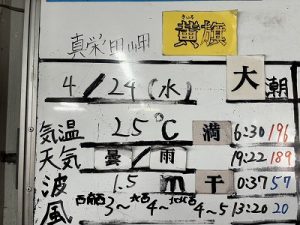 真栄田岬
きいろ
黄旗
4/24(水) 大潮
気温 25℃ 満 6:30 196
天気 曇/雨 19:22 189
波 1.5 m 干 0:37 57
風 西南西 3~ 大西 4~ 北北西 4~5 13:20 20